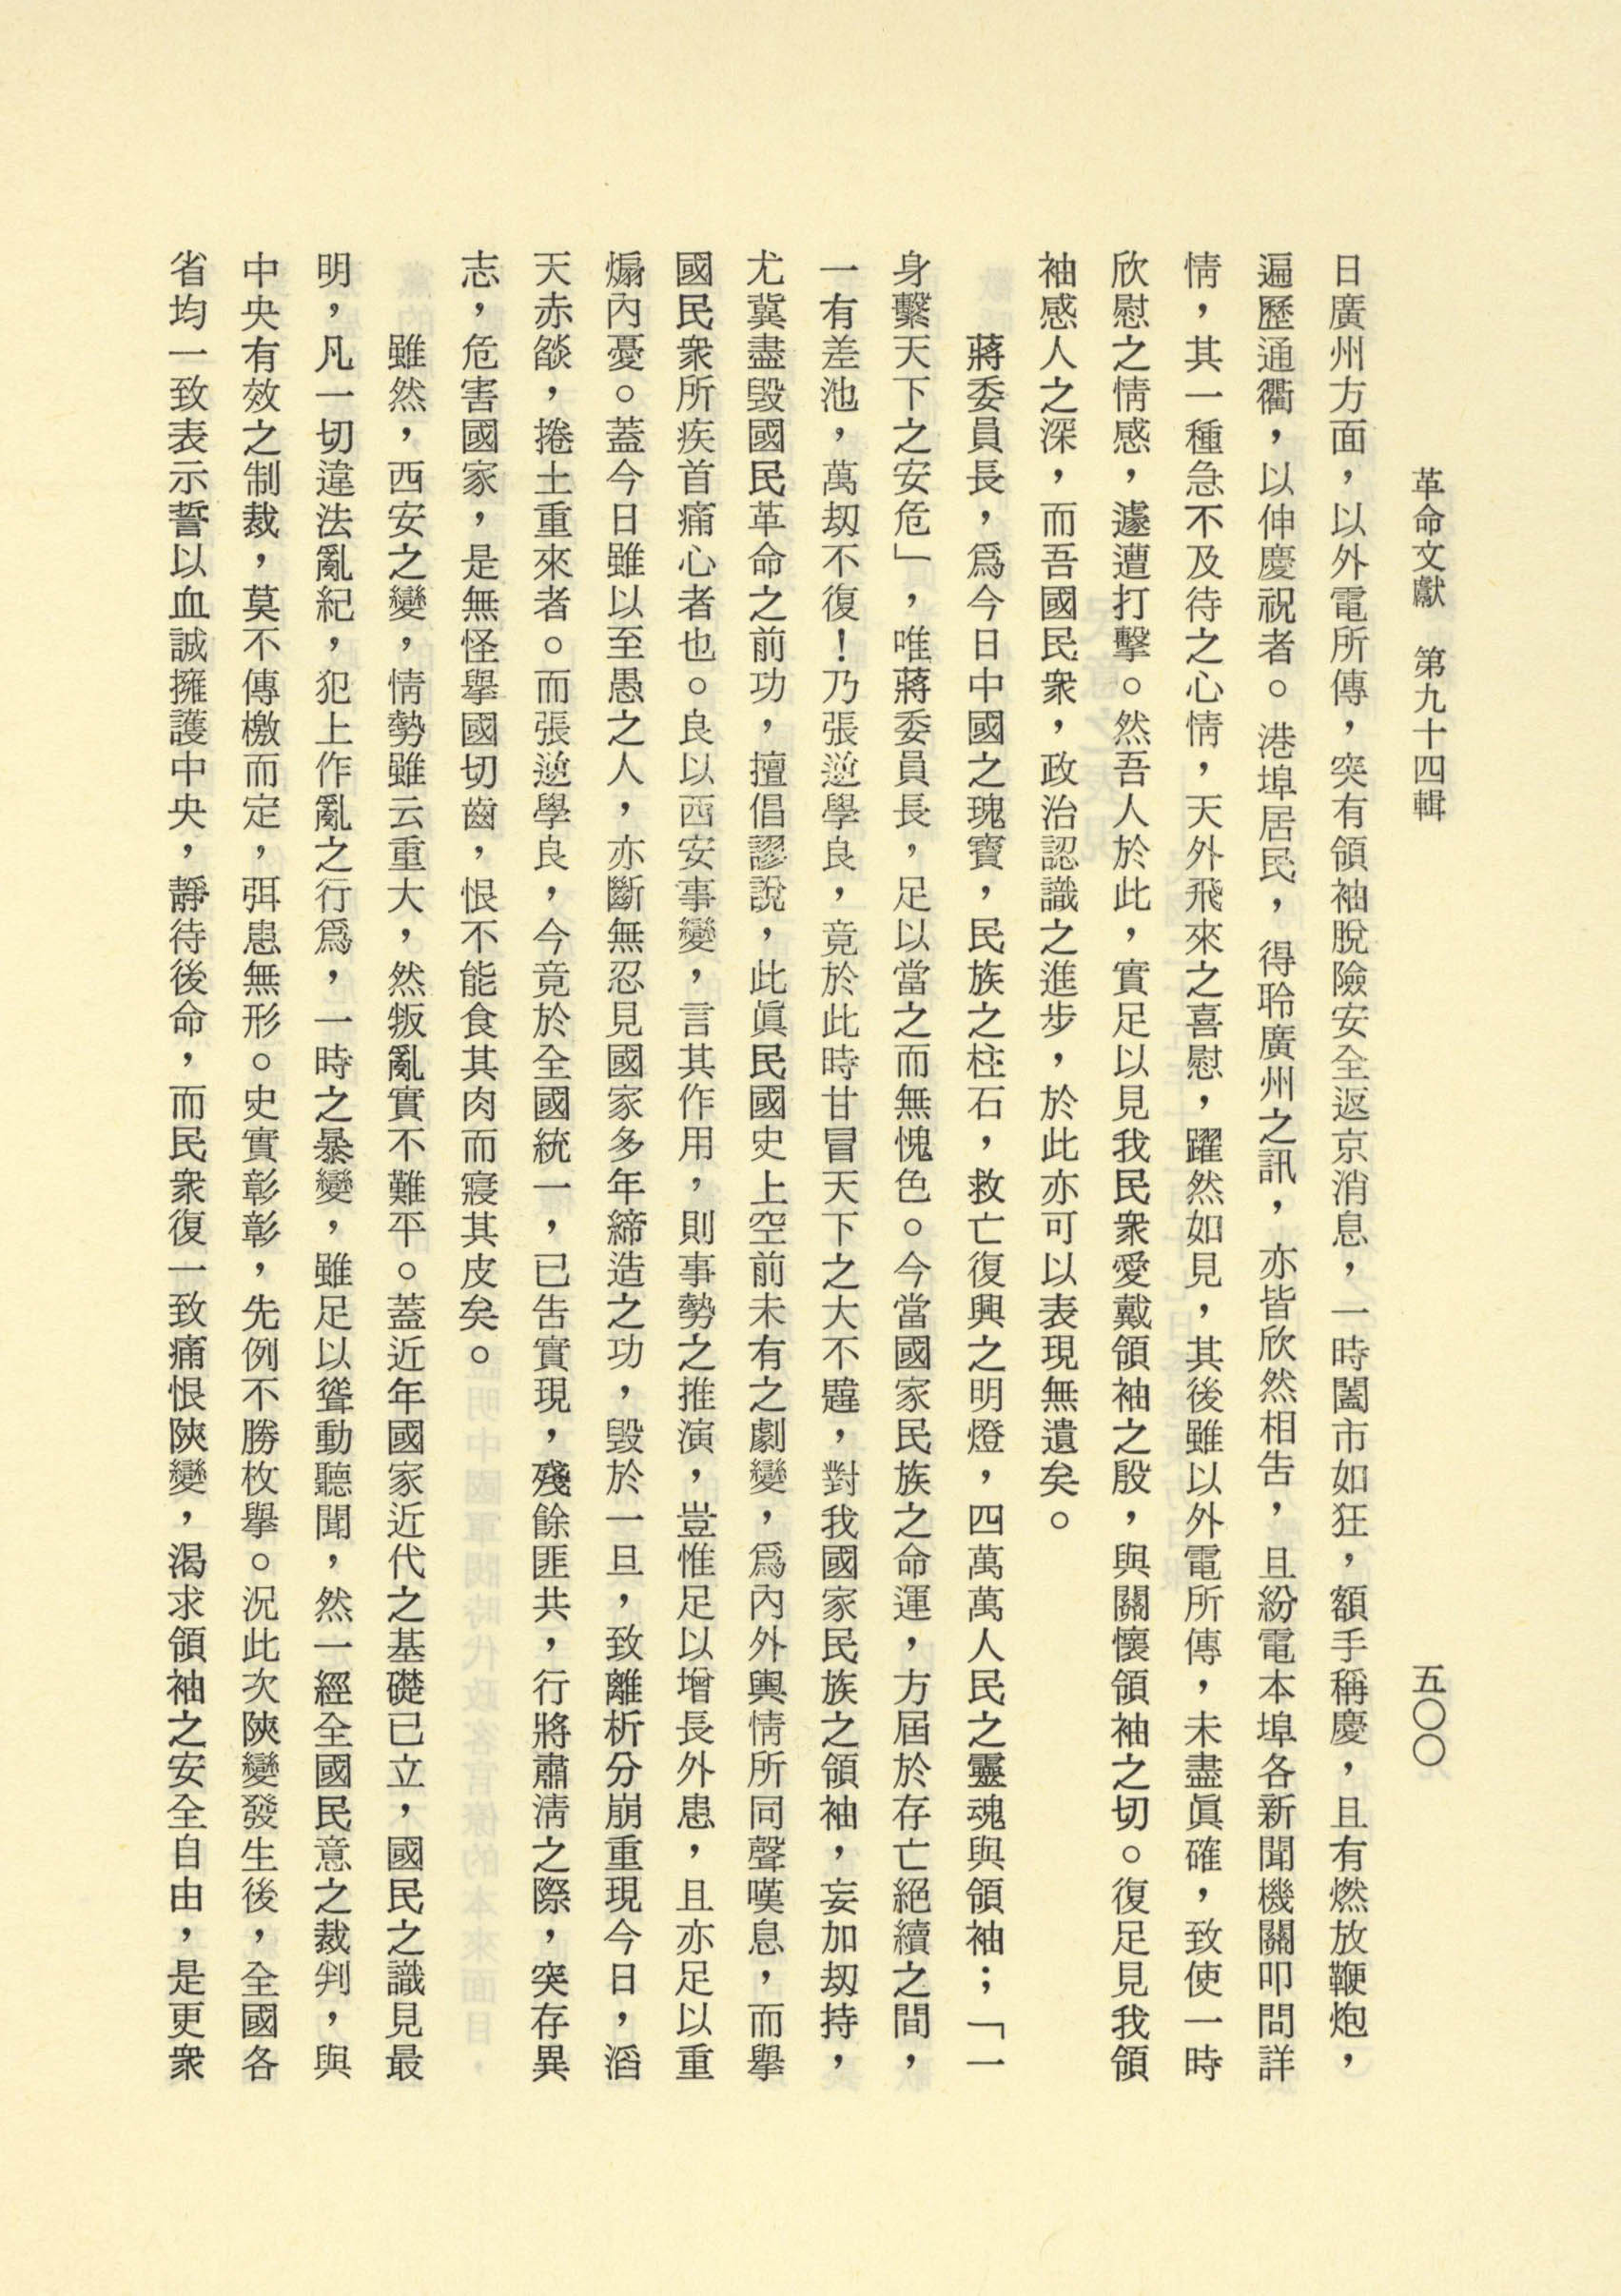 革命文獻　第九十四輯　五〇〇
日廣州方面，以外電所傳，突有領袖脫險安全返京消息，一時闔市如狂，額手稱慶，且有燃放鞭炮，
遍歷通衢，以伸慶祝者。港埠居民，得聆廣州之訊，亦皆欣然相告，且紛電本埠各新聞機關叩問詳
情，其一種急不及待之心情，天外飛來之喜慰，躍然如見，其後雖以外電所傳，未盡眞確，致使一時
欣慰之情感，遽遭打擊。然吾人於此，實足以見我民衆愛戴領袖之殷，與關懷領袖之切。復足見我領
袖感人之深，而吾國民衆，政治認識之進步，於此亦可以表現無遺矣。
蔣委員長，爲今日中國之瑰寶，民族之柱石，救亡復興之明燈，四萬萬人民之靈魂與領袖；「一
身繫天下之安危」，唯蔣委員長，足以當之而無愧色。今當國家民族之命運，方屆於存亡絕續之間，
一有差池，萬刼不復！乃張逆學良，竟於此時甘冒天下之大不韙，對我國家民族之領袖，妄加刼持，
尤冀盡毀國民革命之前功，擅倡謬說，此眞民國史上空前未有之劇變，爲內外輿情所同聲嘆息，而舉
國民衆所疾首痛心者也。良以西安事變，言其作用，則事勢之推演，豈惟足以增長外患，且亦足以重
煽內憂。蓋今日雖以至愚之人，亦斷無忍見國家多年締造之功，毀於一旦，致離析分崩重現今日，滔
天赤燄，捲土重來者。而張逆學良，今竟於全國統一，已告實現，殘餘匪共，行將肅淸之際，突存異
志，危害國家，是無怪舉國切齒，恨不能食其肉而寢其皮矣。
雖然，西安之變，情勢雖云重大，然叛亂實不難平。蓋近年國家近代之基礎已立，國民之識見最
明，凡一切違法亂紀，犯上作亂之行爲，一時之暴變，雖足以聳動聽聞，然一經全國民意之裁判，與
中央有效之制裁，莫不傳檄而定，弭患無形。史實彰彰，先例不勝枚舉。況此次陝變發生後，全國各
省均一致表示誓以血誠擁護中央，靜待後命，而民衆復一致痛恨陝變，渴求領袖之安全自由，是更衆